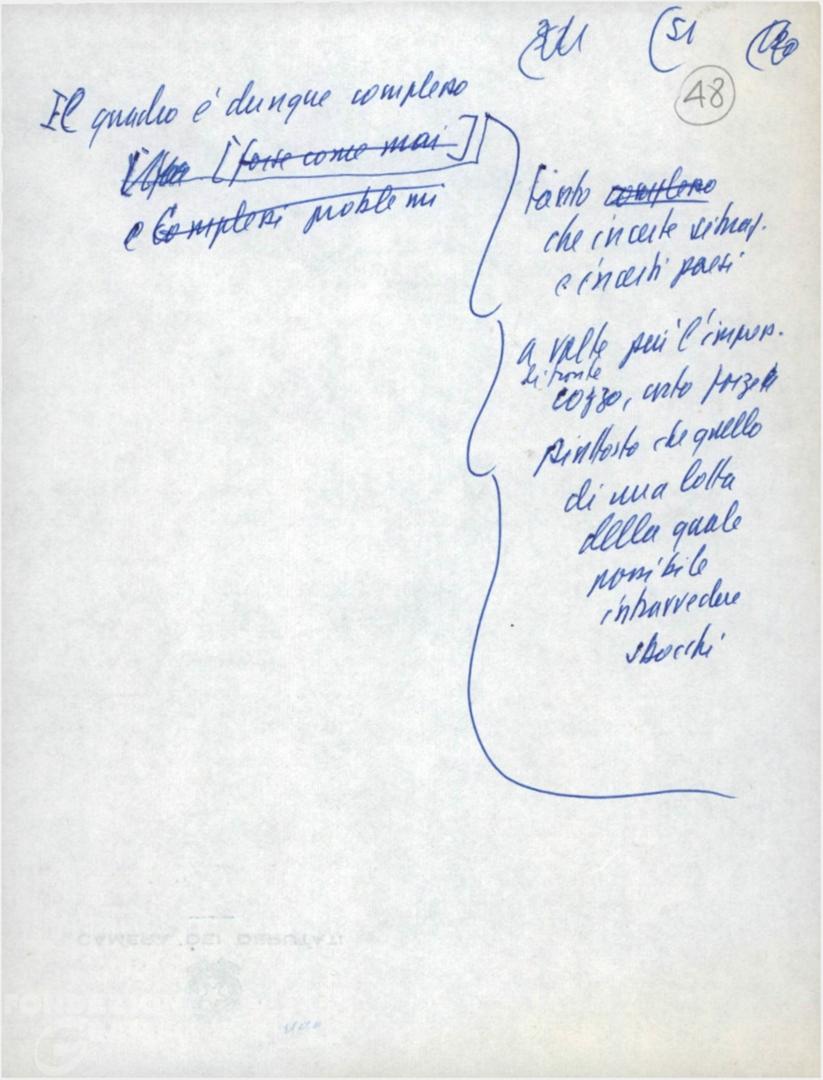 (51
48
Il quadro è dunque complesso
[forse come mai]
e complessi problemi
tanto complesso
che in certe situaz.
e in certi paesi
a volte più l'impres.
di fronte
cozzo, urto forze
piuttosto che quello
di una lotta
della quale
possibile
intravvedere
sbocchi
CAMERA DEI DEPUTATI